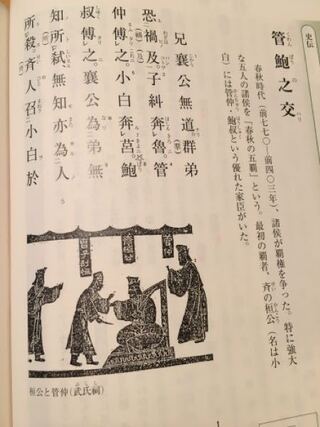 史伝
管鮑之交
春秋時代（前七七〇―前四〇三年）、諸侯が覇権を争った。特に強大
な五人の諸侯を「春秋の五覇」という。最初の覇者、斉の桓公（名は小
白）には管仲・鮑叔という優れた家臣がいた。
兄襄公無道群弟
恐禍及子糾奔魯。管
仲傅之。小白奔莒。鮑
叔傅之。襄公為弟無
知所弑。無知亦為人
所殺。斉人召小白。於
桓公と管仲（武氏祠）